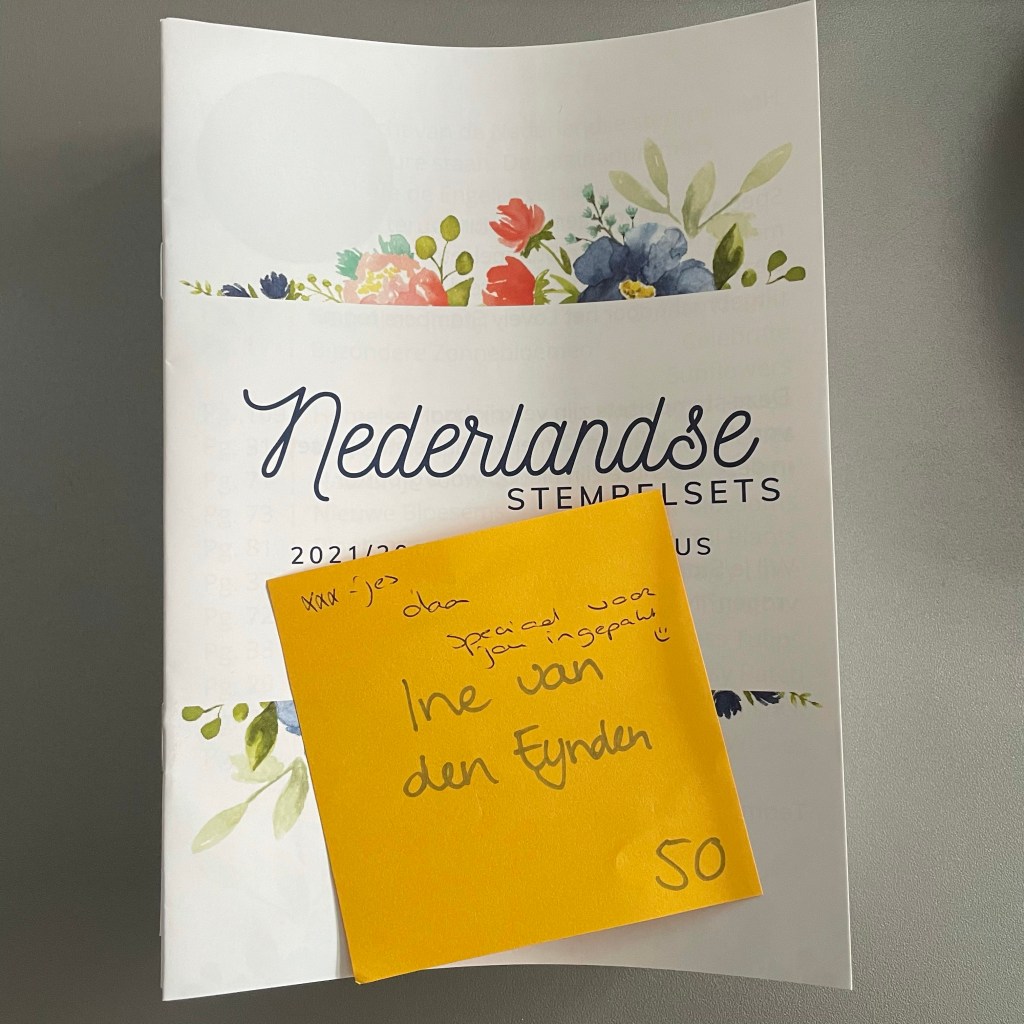 Nederlandse
STEMPELSETS
2021/20 US
xxx-jes
daa
speciaal voor
jou ingepakt
Ine van
den Eynden
50